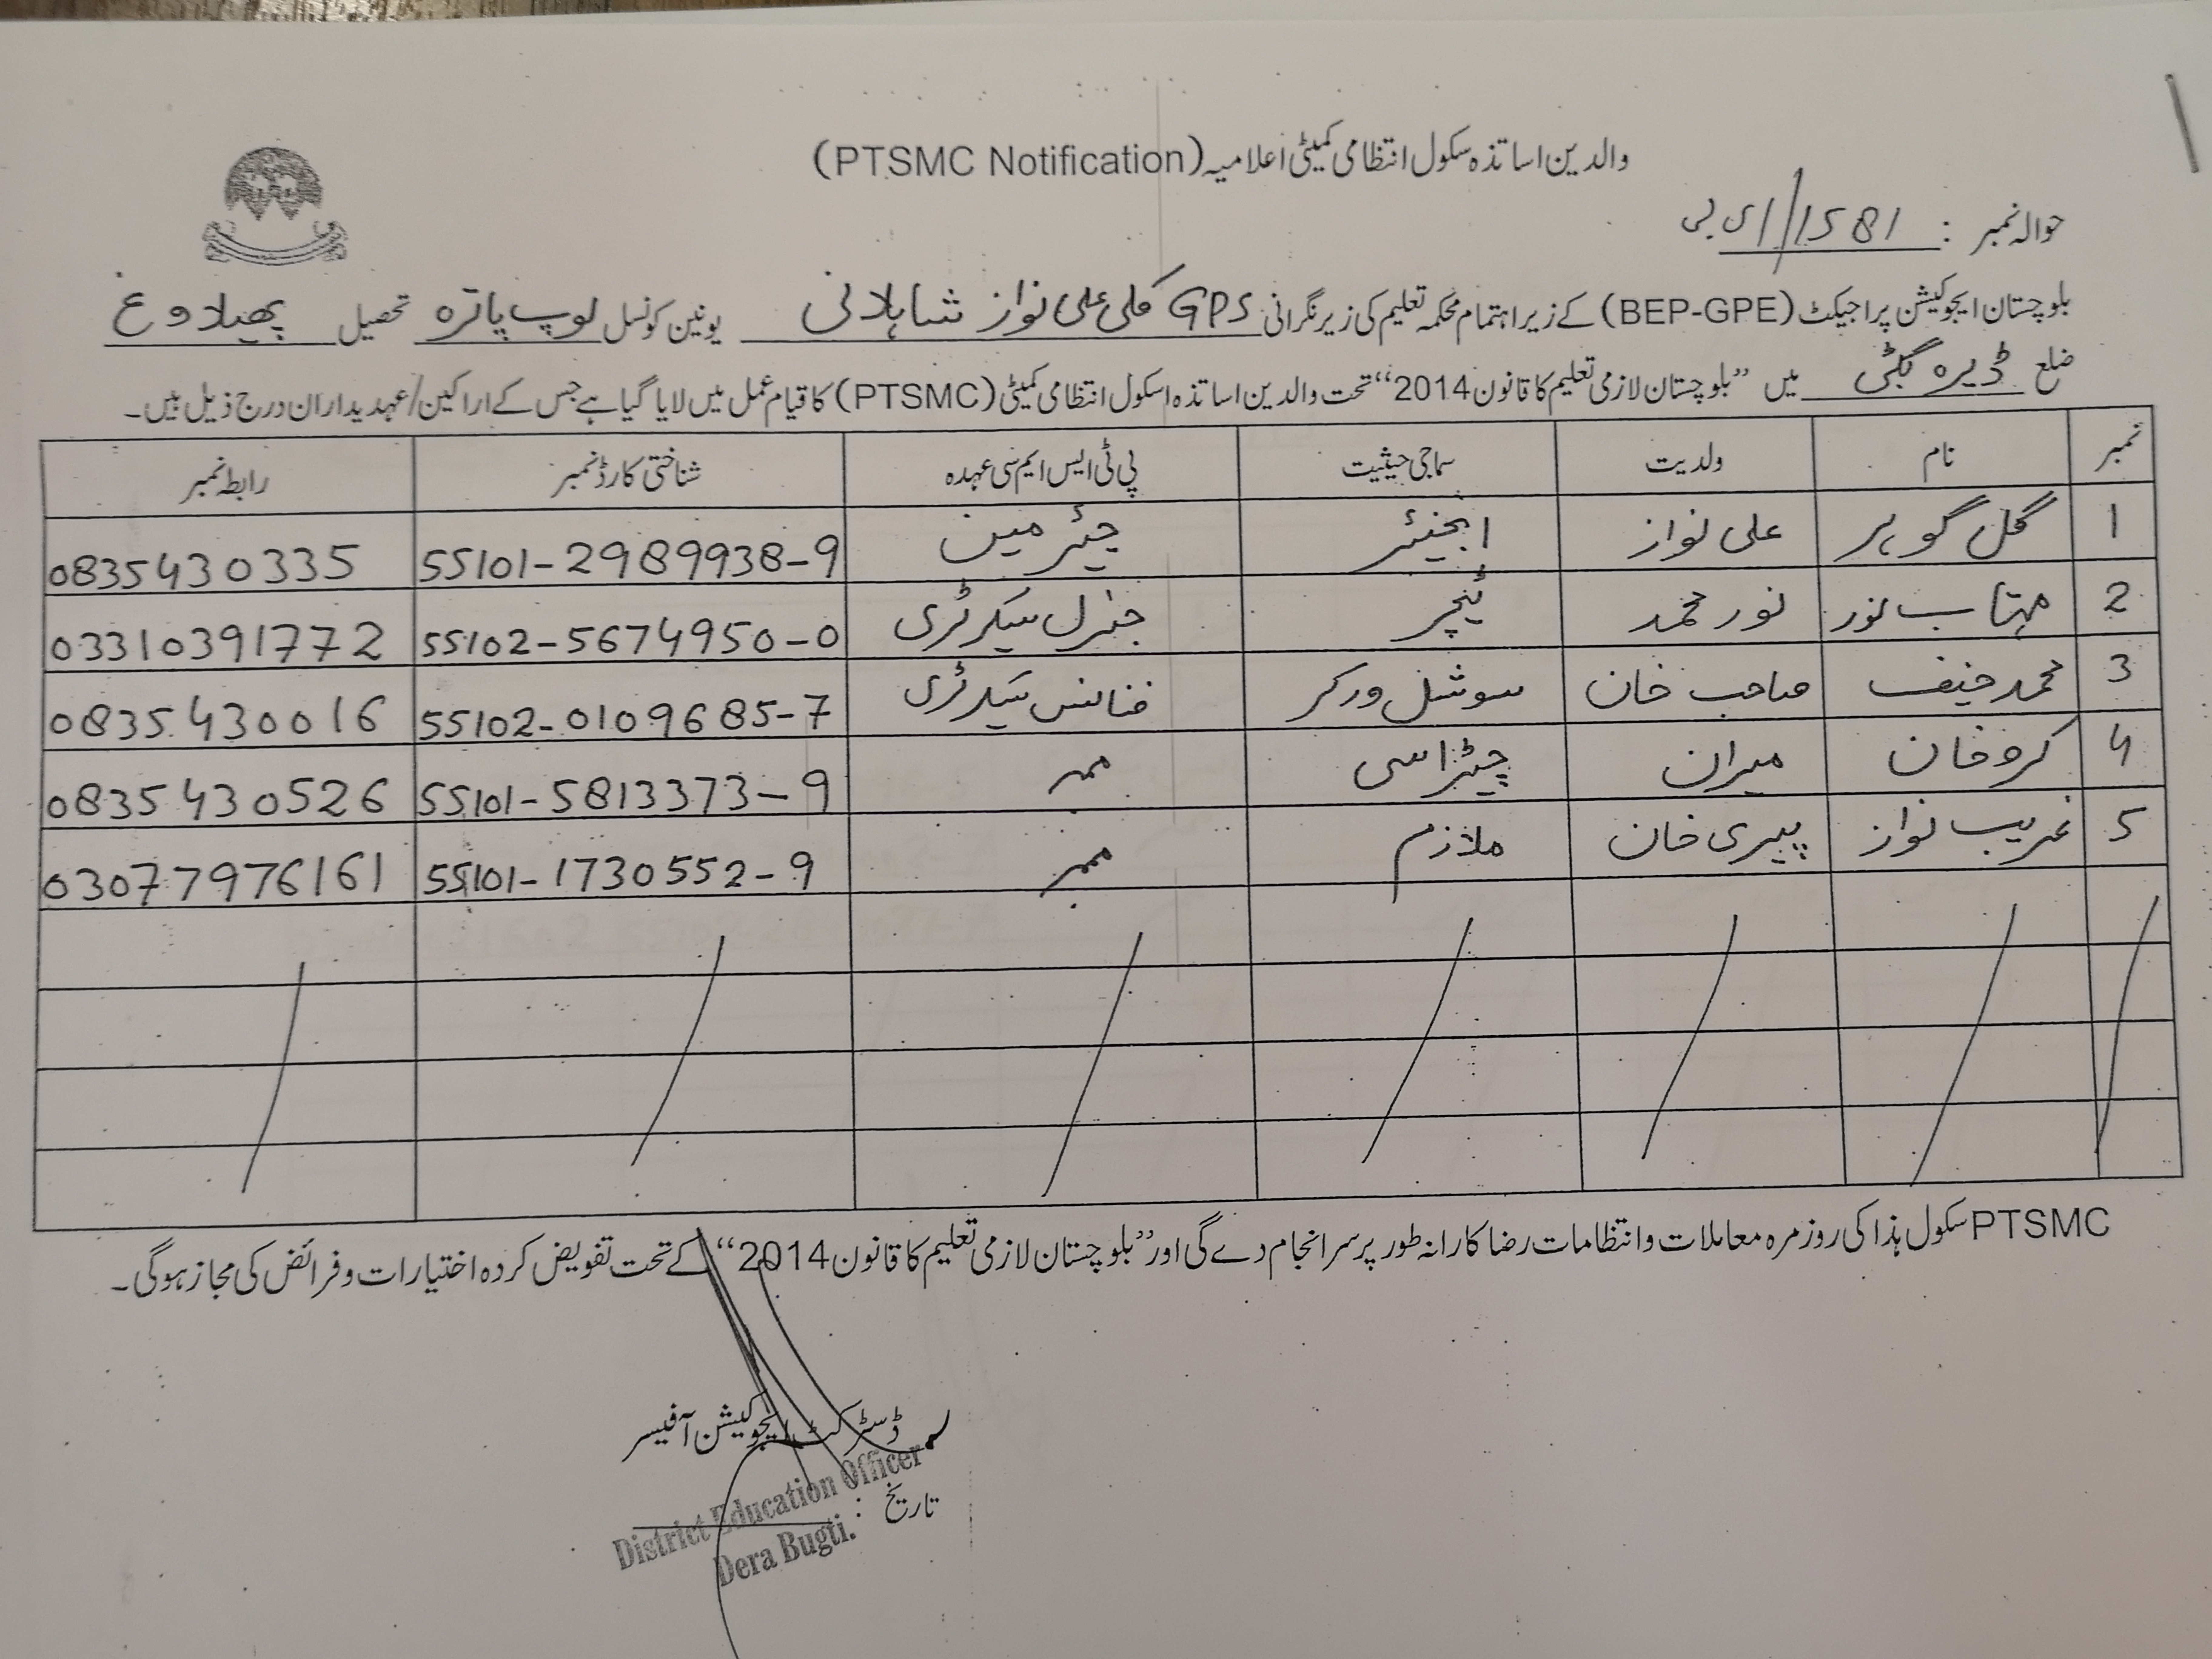 والدین اساتذہ سکول انتظامی کمیٹی اعلامیہ (PTSMC Notification)
حوالہ نمبر : 1581/ای بی
بلوچستان ایجوکیشن پراجیکٹ (BEP-GPE) کے زیر اہتمام محکمہ تعلیم کی زیر نگرانی GPS کلی علی نواز شاہلانی یونین کونسل لوپ پاترہ تحصیل پھیلاوغ
ضلع ڈیرہ بگٹی میں ”بلوچستان لازمی تعلیم کا قانون 2014“ تحت والدین اساتذہ اسکول انتظامی کمیٹی (PTSMC) کا قیام عمل میں لایا گیا ہے جس کے اراکین/عہدیداران درج ذیل ہیں۔
نمبر نام ولدیت سماجی حیثیت پی ٹی ایس ایم سی عہدہ شناختی کارڈ نمبر رابطہ نمبر
1 گل گوہر علی نواز انجنیئر چیئرمین 55101-2989938-9 0835430335
2 مہتاب نور نور محمد ٹیچر جنرل سیکرٹری 55102-5674950-0 03310391772
3 محمد حنیف صاحب خان سوشل ورکر فنانس سیکرٹری 55102-0109685-7 0835430016
4 کرو خان میران چپڑاسی ممبر 55101-5813373-9 0835430526
5 غریب نواز پیری خان ملازم ممبر 55101-1730552-9 03077976161
PTSMC سکول ہذا کی روزمرہ معاملات و انتظامات رضاکارانہ طور پر سرانجام دے گی اور ”بلوچستان لازمی تعلیم کا قانون 2014“ کے تحت تفویض کردہ اختیارات و فرائض کی مجاز ہوگی۔
ڈسٹرکٹ ایجوکیشن آفیسر
تاریخ :
District Education Officer
Dera Bugti.